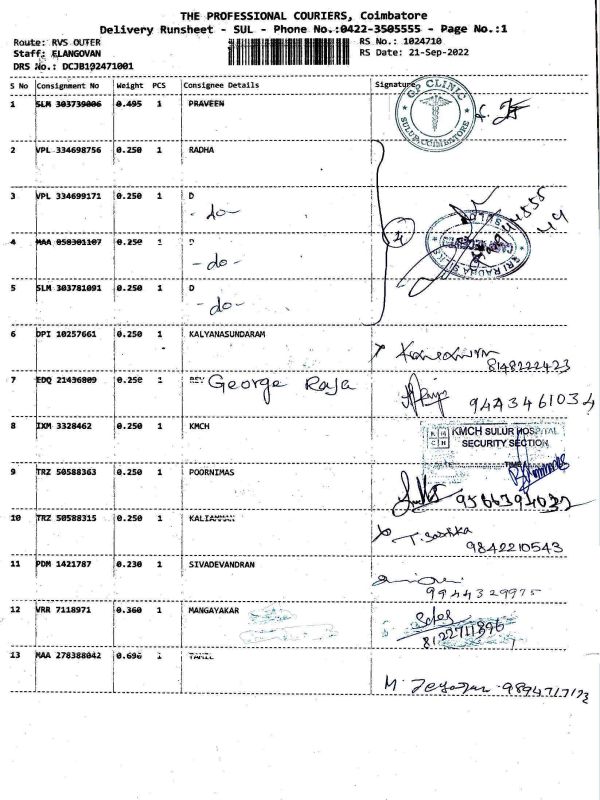 THE PROFESSIONAL COURIERS, Coimbatore
Delivery Runsheet - SUL - Phone No.:0422-3505555 - Page No.:1
Route: RVS OUTER RS No.: 1024710
Staff: ELANGOVAN RS Date: 21-Sep-2022
DRS No.: DCJB192471001
S No Consignment No Weight PCS Consignee Details Signature
1 SLM 303739006 0.495 1 PRAVEEN
G2 CLINIC
SULUR, COIMBATORE
2 VPL 334698756 0.250 1 RADHA
3 VPL 334699171 0.250 1 D
-do-
SRI RADHA SILKS
4 MAA 050301107 0.250 1 D
-do-
5 SLM 303781091 0.250 1 D
-do-
6 DPI 10257661 0.250 1 KALYANASUNDARAM
8148222423
7 EDQ 21436809 0.250 1 REV George Raja
9443461034
8 IXM 3328462 0.250 1 KMCH
KMCH SULUR HOSPITAL
SECURITY SECTION
9 TRZ 50588363 0.250 1 POORNIMAS
10 TRZ 50588315 0.250 1 KALIAMMAN
9842210543
11 PDM 1421787 0.230 1 SIVADEVANDRAN
9944329975
12 VRR 7118971 0.360 1 MANGAYAKAR
8122711896
13 MAA 278388042 0.696 1 TAMIL